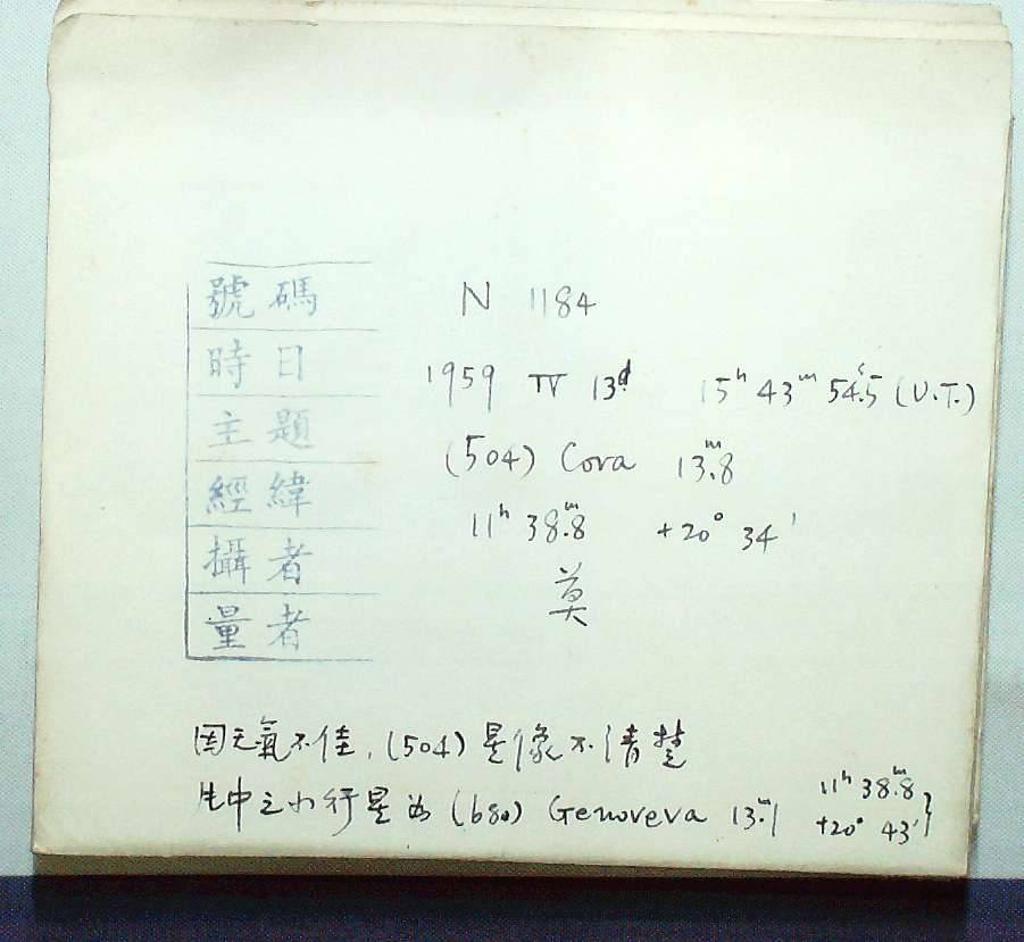 號碼 N 1184
時日 1959 IV 13ᵈ. 15ʰ 43ᵐ 54ˢ.5 (U.T.)
主題 (504) Cora 13ᵐ.8
經緯 11ʰ 38ᵐ.8 +20° 34'
攝者 莫
量者
因天氣不佳,(504) 星像不清楚
其中之小行星為 (680) Genoveva 13ᵐ.1 11ʰ 38ᵐ.8
+20° 43' }